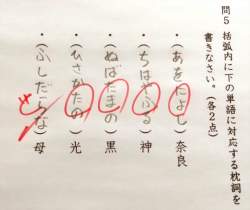 問5 括弧内に下の単語に対応する枕詞を
書きなさい。(各2点)
・(あをによし)奈良
・(ちはやぶる)神
・(ぬばたまの)黒
・(ひさかたの)光
・(ふしだらな)母